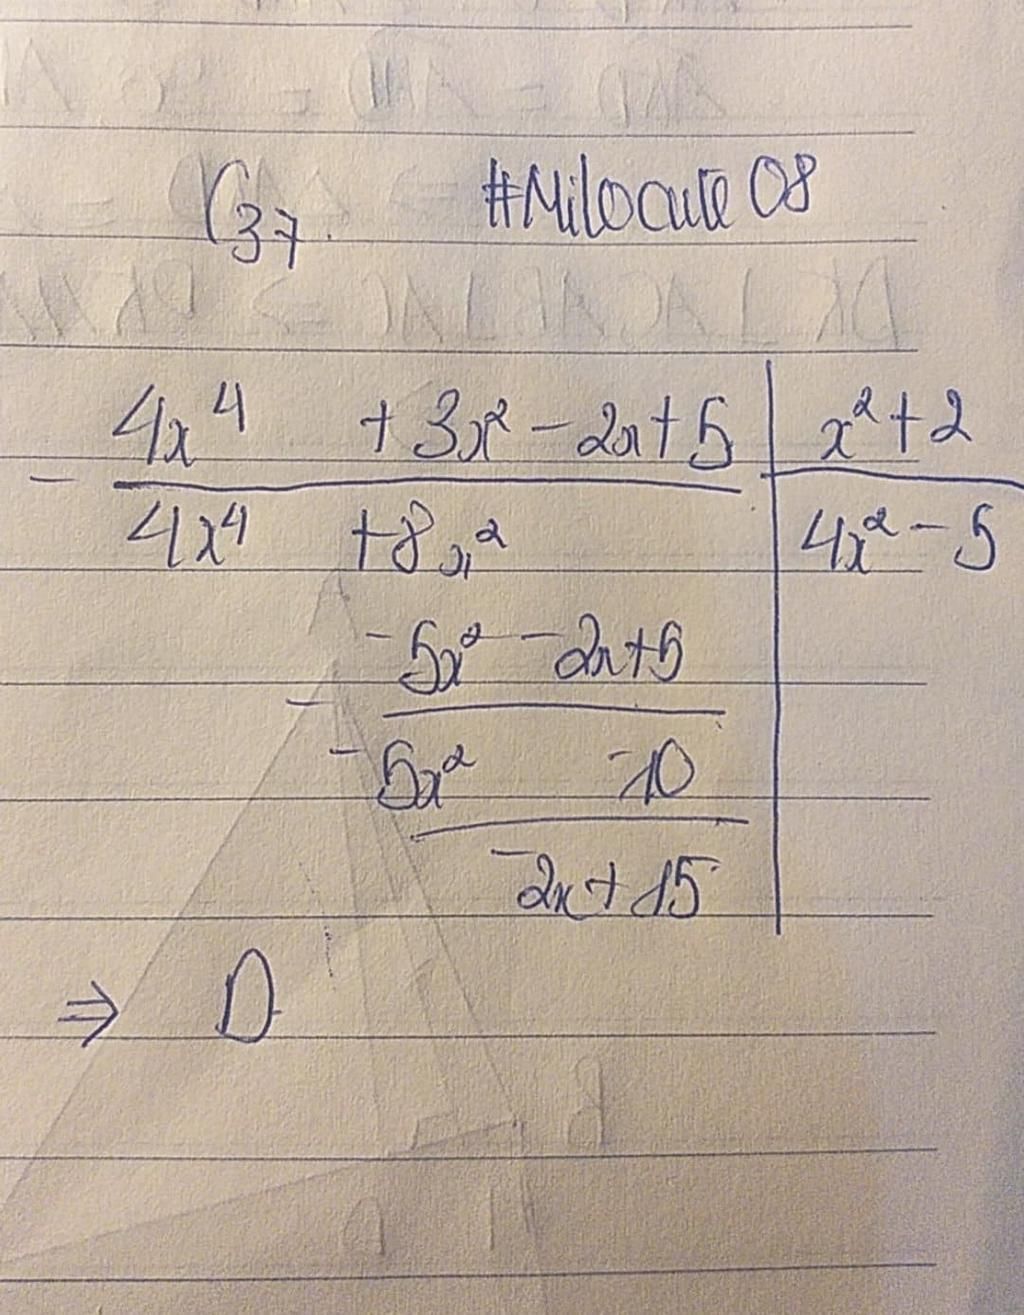 C37. #Milocute08
4x⁴ + 3x² - 2x + 5 | x² + 2
- 4x⁴ + 8x² | 4x² - 5
-5x² - 2x + 5
- -5x² -10
-2x + 15
⇒ D